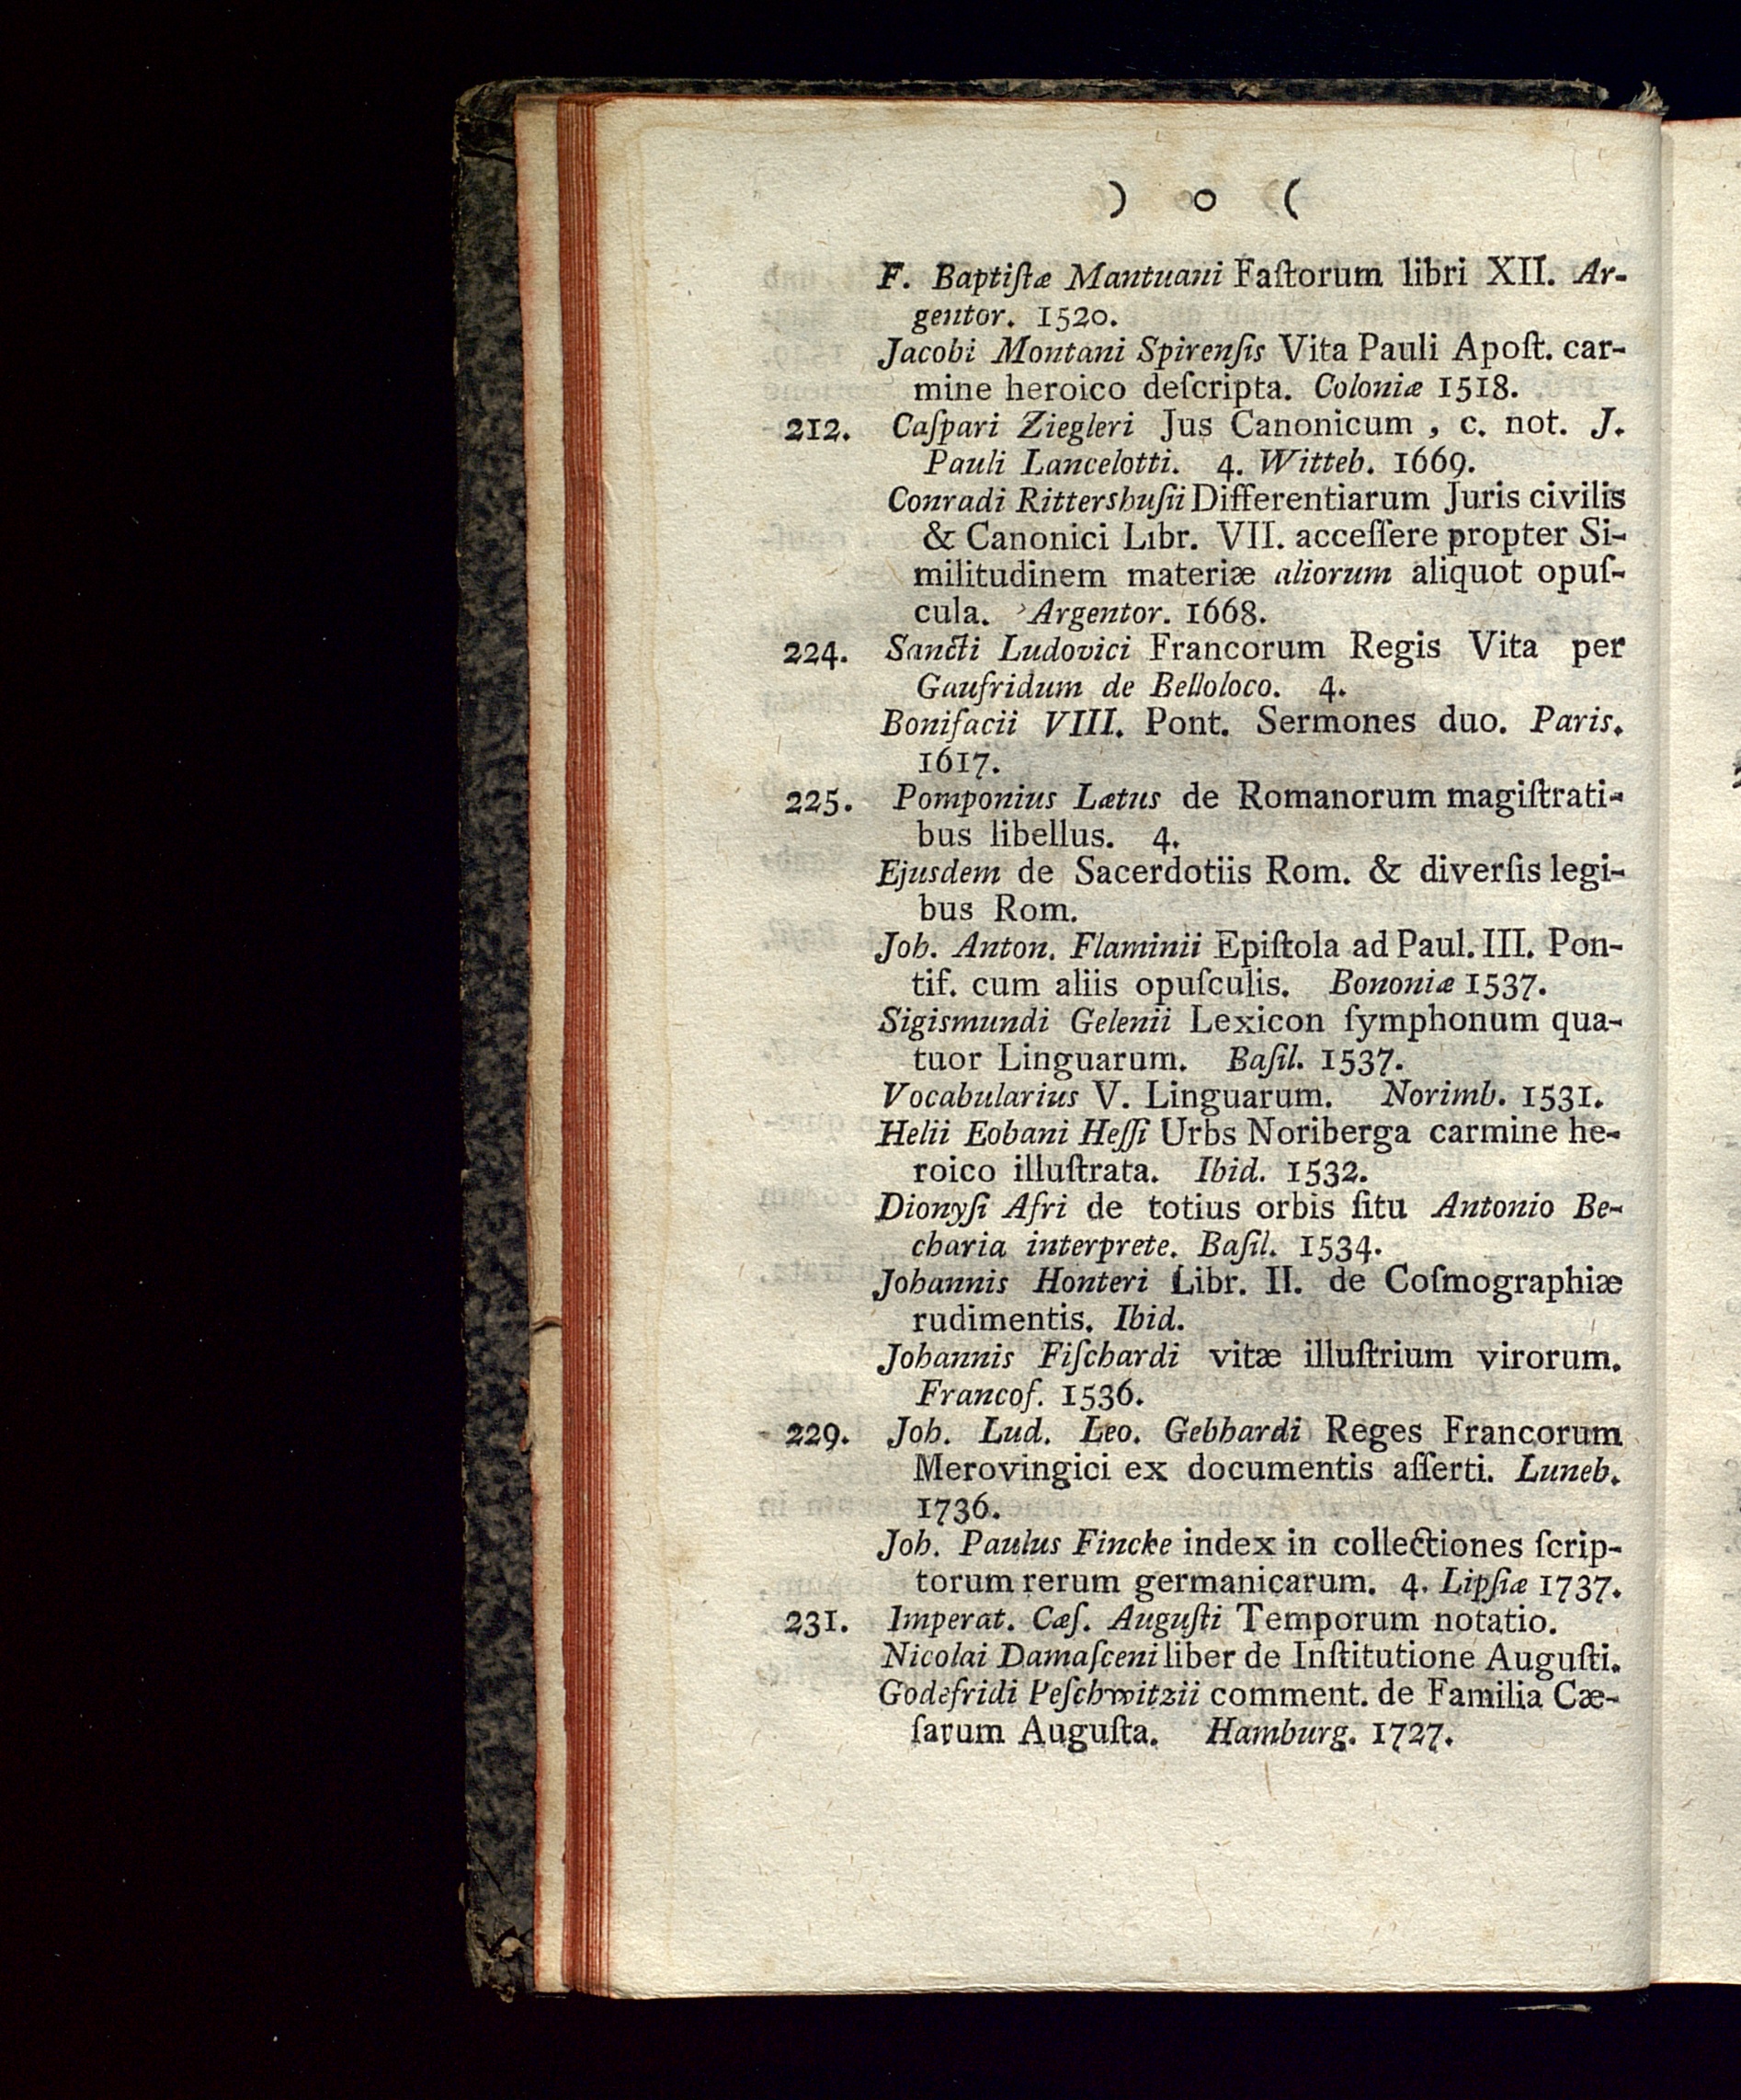 ) o (
F. Baptiſtæ Mantuani Faſtorum libri XII. Ar-
gentor. 1520.
Jacobi Montani Spirenſis Vita Pauli Apoſt. car-
mine heroico deſcripta. Coloniæ 1518.
212. Caſpari Ziegleri Jus Canonicum, c. not. J.
Pauli Lancelotti. 4. Witteb. 1669.
Conradi Rittershuſii Differentiarum Juris civilis
& Canonici Libr. VII. acceſſere propter Si-
militudinem materiæ aliorum aliquot opuſ-
cula. Argentor. 1668.
224. Sancti Ludovici Francorum Regis Vita per
Gaufridum de Belloloco. 4.
Bonifacii VIII. Pont. Sermones duo. Paris.
1617.
225. Pomponius Lætus de Romanorum magiſtrati-
bus libellus. 4.
Ejusdem de Sacerdotiis Rom. & diverſis legi-
bus Rom.
Joh. Anton. Flaminii Epiſtola ad Paul. III. Pon-
tif. cum aliis opuſculis. Bononiæ 1537.
Sigismundi Gelenii Lexicon ſymphonum qua-
tuor Linguarum. Baſil. 1537.
Vocabularius V. Linguarum. Norimb. 1531.
Helii Eobani Heſſi Urbs Noriberga carmine he-
roico illuſtrata. Ibid. 1532.
Dionyſi Afri de totius orbis ſitu Antonio Be-
charia interprete. Baſil. 1534.
Johannis Honteri Libr. II. de Coſmographiæ
rudimentis. Ibid.
Johannis Fiſchardi vitæ illuſtrium virorum.
Francof. 1536.
229. Joh. Lud. Leo. Gebhardi Reges Francorum
Merovingici ex documentis aſſerti. Luneb.
1736.
Joh. Paulus Fincke index in collectiones ſcrip-
torum rerum germanicarum. 4. Lipſiæ 1737.
231. Imperat. Cæſ. Auguſti Temporum notatio.
Nicolai Damaſceni liber de Inſtitutione Auguſti.
Godefridi Peſchwitzii comment. de Familia Cæ-
ſarum Auguſta. Hamburg. 1727.